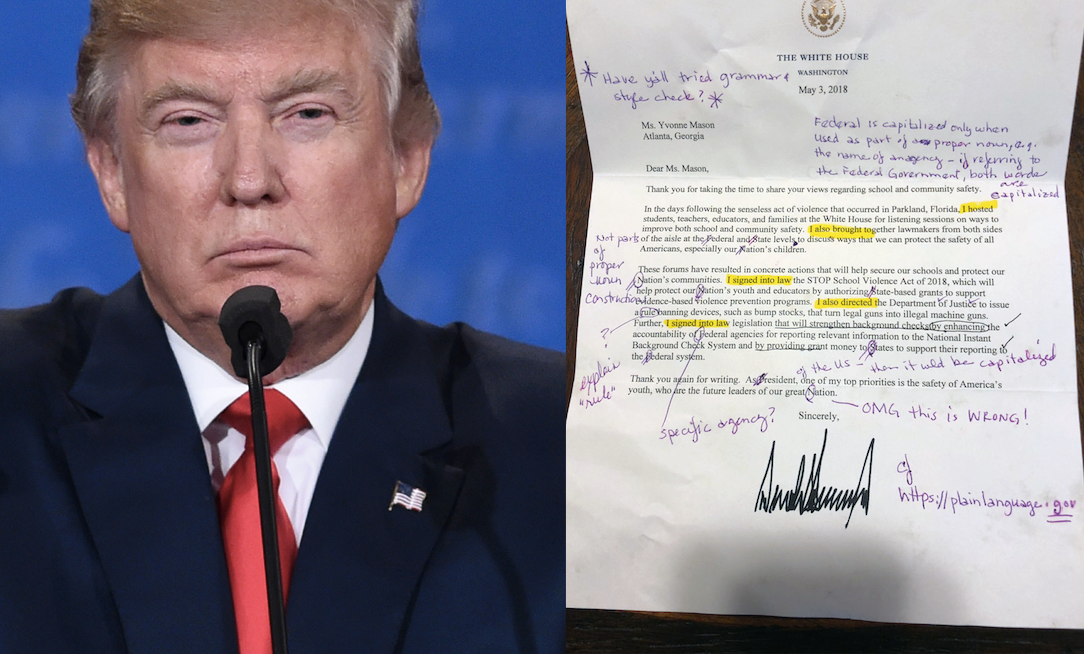 THE WHITE HOUSE
WASHINGTON
May 3, 2018
* Have y'all tried grammar &
style check? *
Ms. Yvonne Mason
Atlanta, Georgia
Federal is capitalized only when
used as part of a proper noun, e.g.
the name of an agency - if referring to
the Federal Government, both words
are
capitalized
Dear Ms. Mason,
Thank you for taking the time to share your views regarding school and community safety.
In the days following the senseless act of violence that occurred in Parkland, Florida, I hosted
students, teachers, educators, and families at the White House for listening sessions on ways to
improve both school and community safety. I also brought together lawmakers from both sides
of the aisle at the Federal and State levels to discuss ways that we can protect the safety of all
Americans, especially our Nation's children.
Not parts
of
proper
noun
construction
These forums have resulted in concrete actions that will help secure our schools and protect our
Nation's communities. I signed into law the STOP School Violence Act of 2018, which will
help protect our Nation's youth and educators by authorizing State-based grants to support
evidence-based violence prevention programs. I also directed the Department of Justice to issue
a rule banning devices, such as bump stocks, that turn legal guns into illegal machine guns.
Further, I signed into law legislation that will strengthen background checks by enhancing the
accountability of Federal agencies for reporting relevant information to the National Instant
Background Check System and by providing grant money to States to support their reporting to
the Federal system.
?
explain
"rule"
of the US - then it would be capitalized
Thank you again for writing. As President, one of my top priorities is the safety of America's
youth, who are the future leaders of our great Nation.
OMG this is WRONG!
specific agency?
Sincerely,
cf
https://plainlanguage.gov